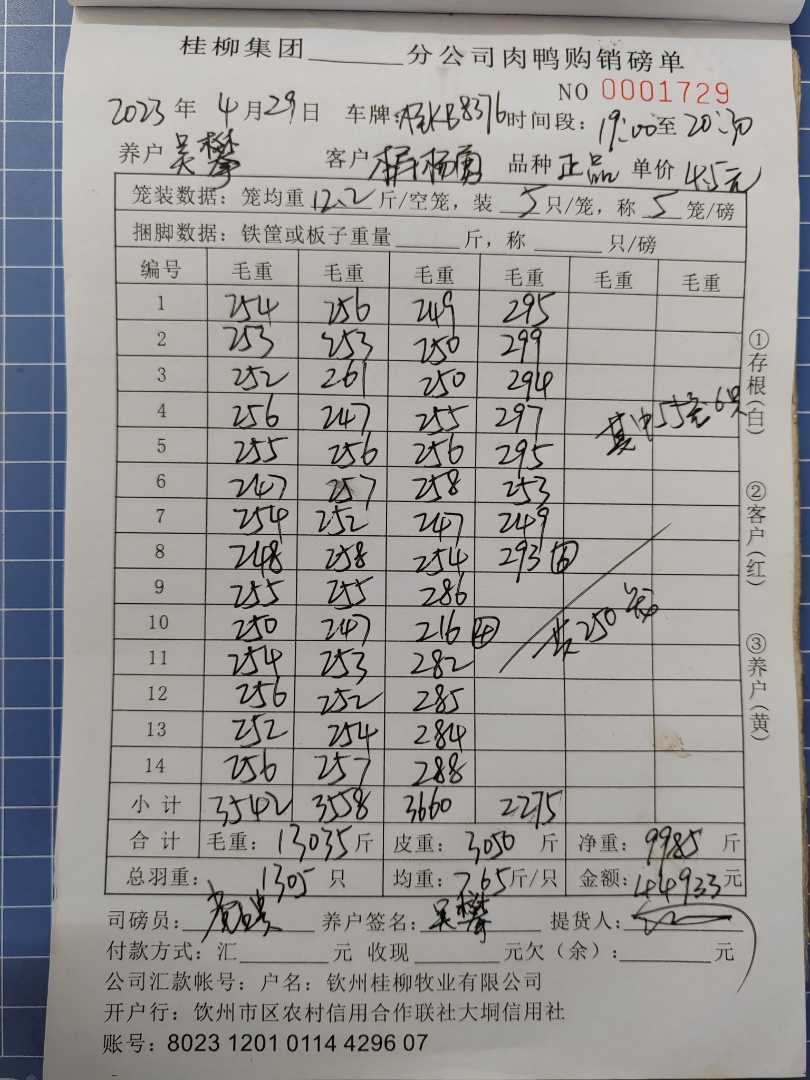 桂柳集团______分公司肉鸭购销磅单
NO 0001729
2023 年 4 月 29 日 车牌: 8376 时间段: 19:00 至 20:30
养户 吴攀 客户 杨勇 品种 正品 单价 4.5元
笼装数据: 笼均重 12.2 斤/空笼, 装 5 只/笼, 称 5 笼/磅
捆脚数据: 铁筐或板子重量______斤, 称______只/磅
编号 毛重 毛重 毛重 毛重 毛重 毛重
1 254 256 249 295
2 253 253 250 299
3 252 261 250 294
4 256 247 255 297
5 255 256 256 295
其中5.5元6只
6 247 257 258 253
7 254 252 247 249
8 248 258 254 293 ⑥
9 255 255 286
10 250 247 216 ④
共250笼
11 254 253 282
12 256 252 285
13 252 254 284
14 256 257 288
小计 3542 3558 3660 2275
合计 毛重: 13035 斤 皮重: 3050 斤 净重: 9985 斤
总羽重: 1305 只 均重: 7.65 斤/只 金额: 44933 元
司磅员: 养户签名: 吴攀 提货人:
付款方式: 汇______元 收现______元欠(余):______元
公司汇款帐号: 户名: 钦州桂柳牧业有限公司
开户行: 钦州市区农村信用合作联社大垌信用社
账号: 8023 1201 0114 4296 07
①存根(白)
②客户(红)
③养户(黄)